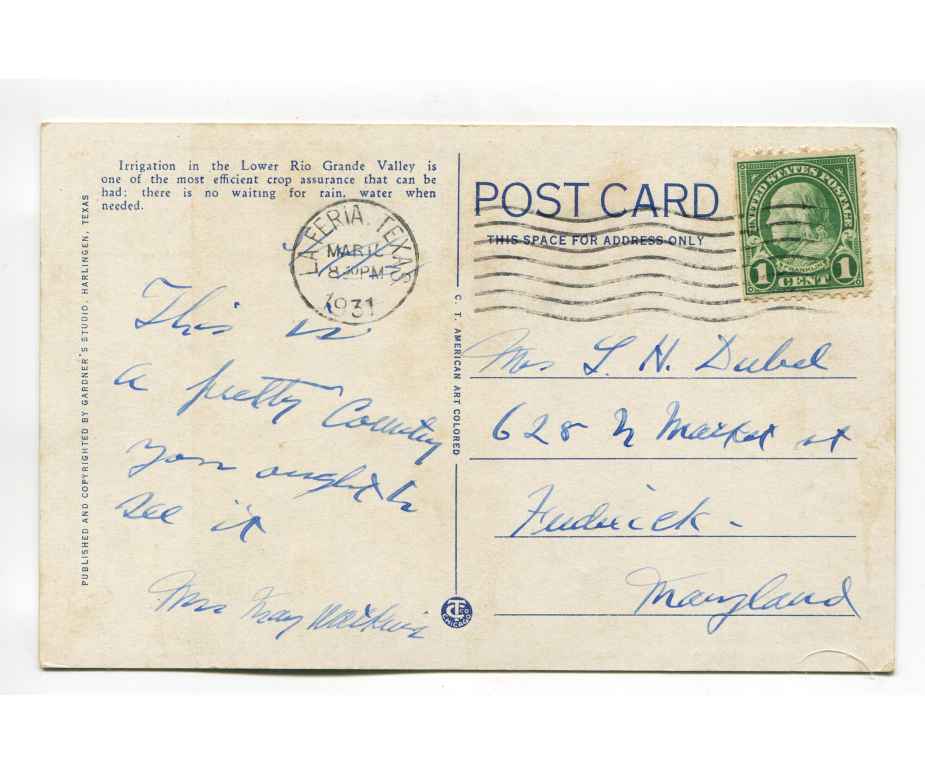 Irrigation in the Lower Rio Grande Valley is
one of the most efficient crop assurance that can be
had; there is no waiting for rain, water when
needed.
PUBLISHED AND COPYRIGHTED BY GARDNER'S STUDIO, HARLINGEN, TEXAS
LA FERIA, TEXAS
MAR
8 30 PM
1931
This is
a pretty Country
you ought to
see it
Mrs May Watkins
C. T. AMERICAN ART COLORED
C T CHICAGO
POST CARD
THIS SPACE FOR ADDRESS ONLY
UNITED STATES POSTAGE
FRANKLIN
1 CENT 1
Mrs L. H. Dubel
628 N Market st
Fredrick -
Maryland